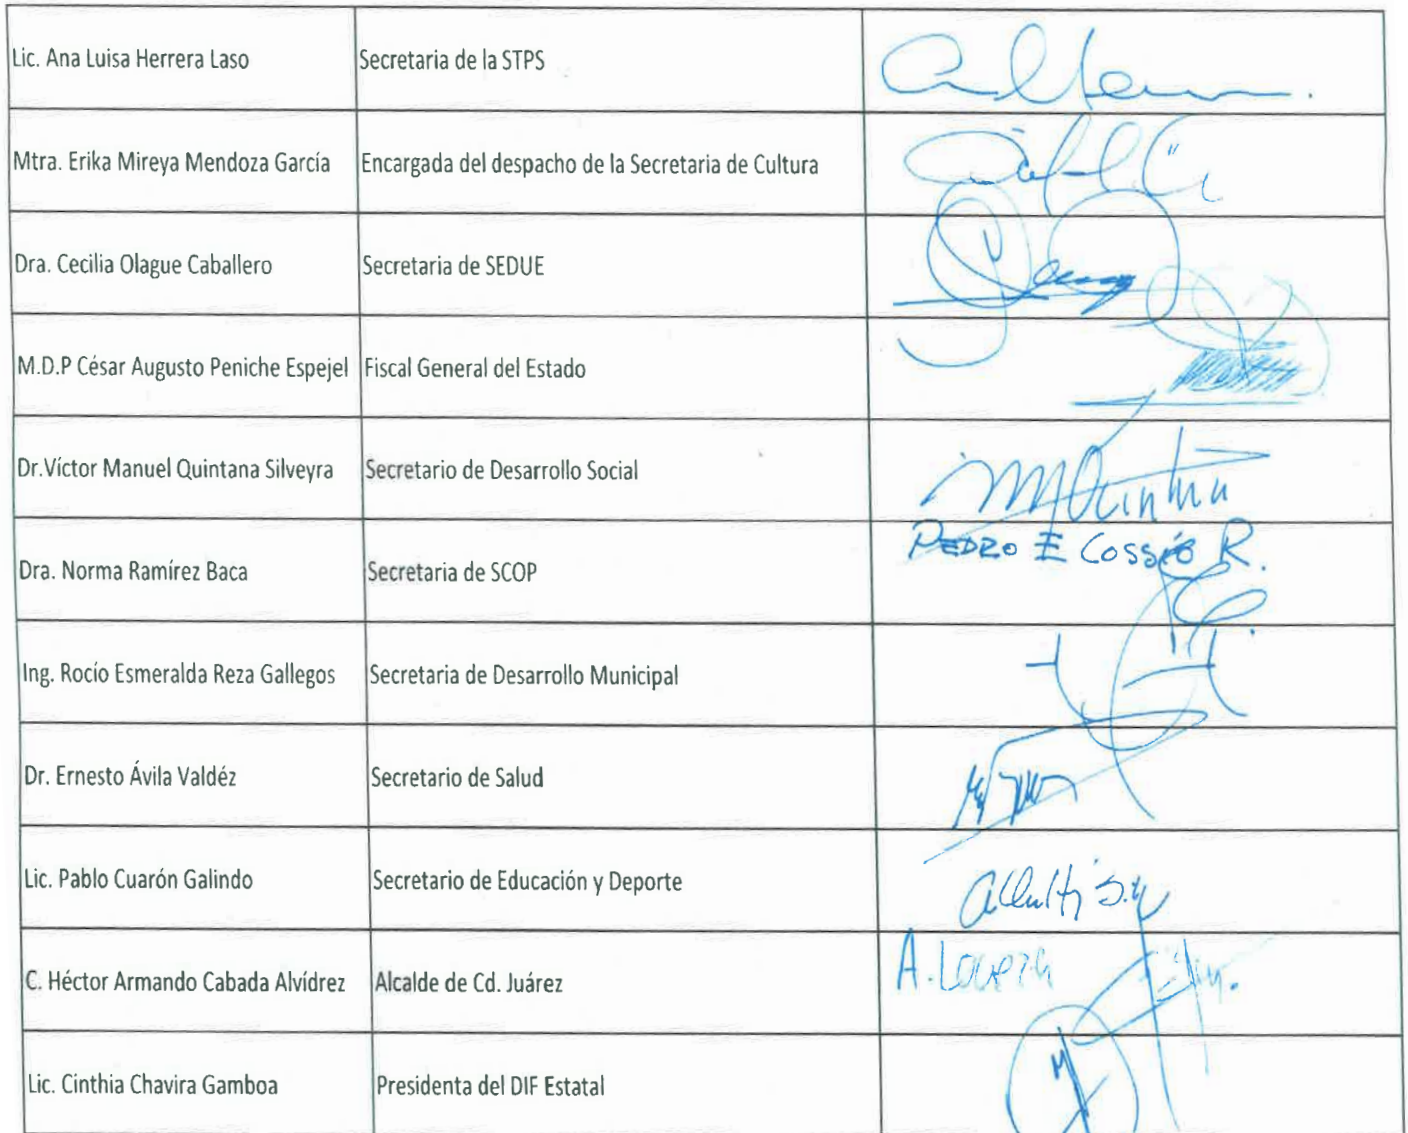 Lic. Ana Luisa Herrera Laso Secretaria de la STPS
Mtra. Erika Mireya Mendoza García Encargada del despacho de la Secretaria de Cultura
Dra. Cecilia Olague Caballero Secretaria de SEDUE
M.D.P César Augusto Peniche Espejel Fiscal General del Estado
Dr.Víctor Manuel Quintana Silveyra Secretario de Desarrollo Social
PEDRO E COSSIO R.
Dra. Norma Ramírez Baca Secretaria de SCOP
Ing. Rocío Esmeralda Reza Gallegos Secretaria de Desarrollo Municipal
Dr. Ernesto Ávila Valdéz Secretario de Salud
Lic. Pablo Cuarón Galindo Secretario de Educación y Deporte
C. Héctor Armando Cabada Alvídrez Alcalde de Cd. Juárez A.
Lic. Cinthia Chavira Gamboa Presidenta del DIF Estatal